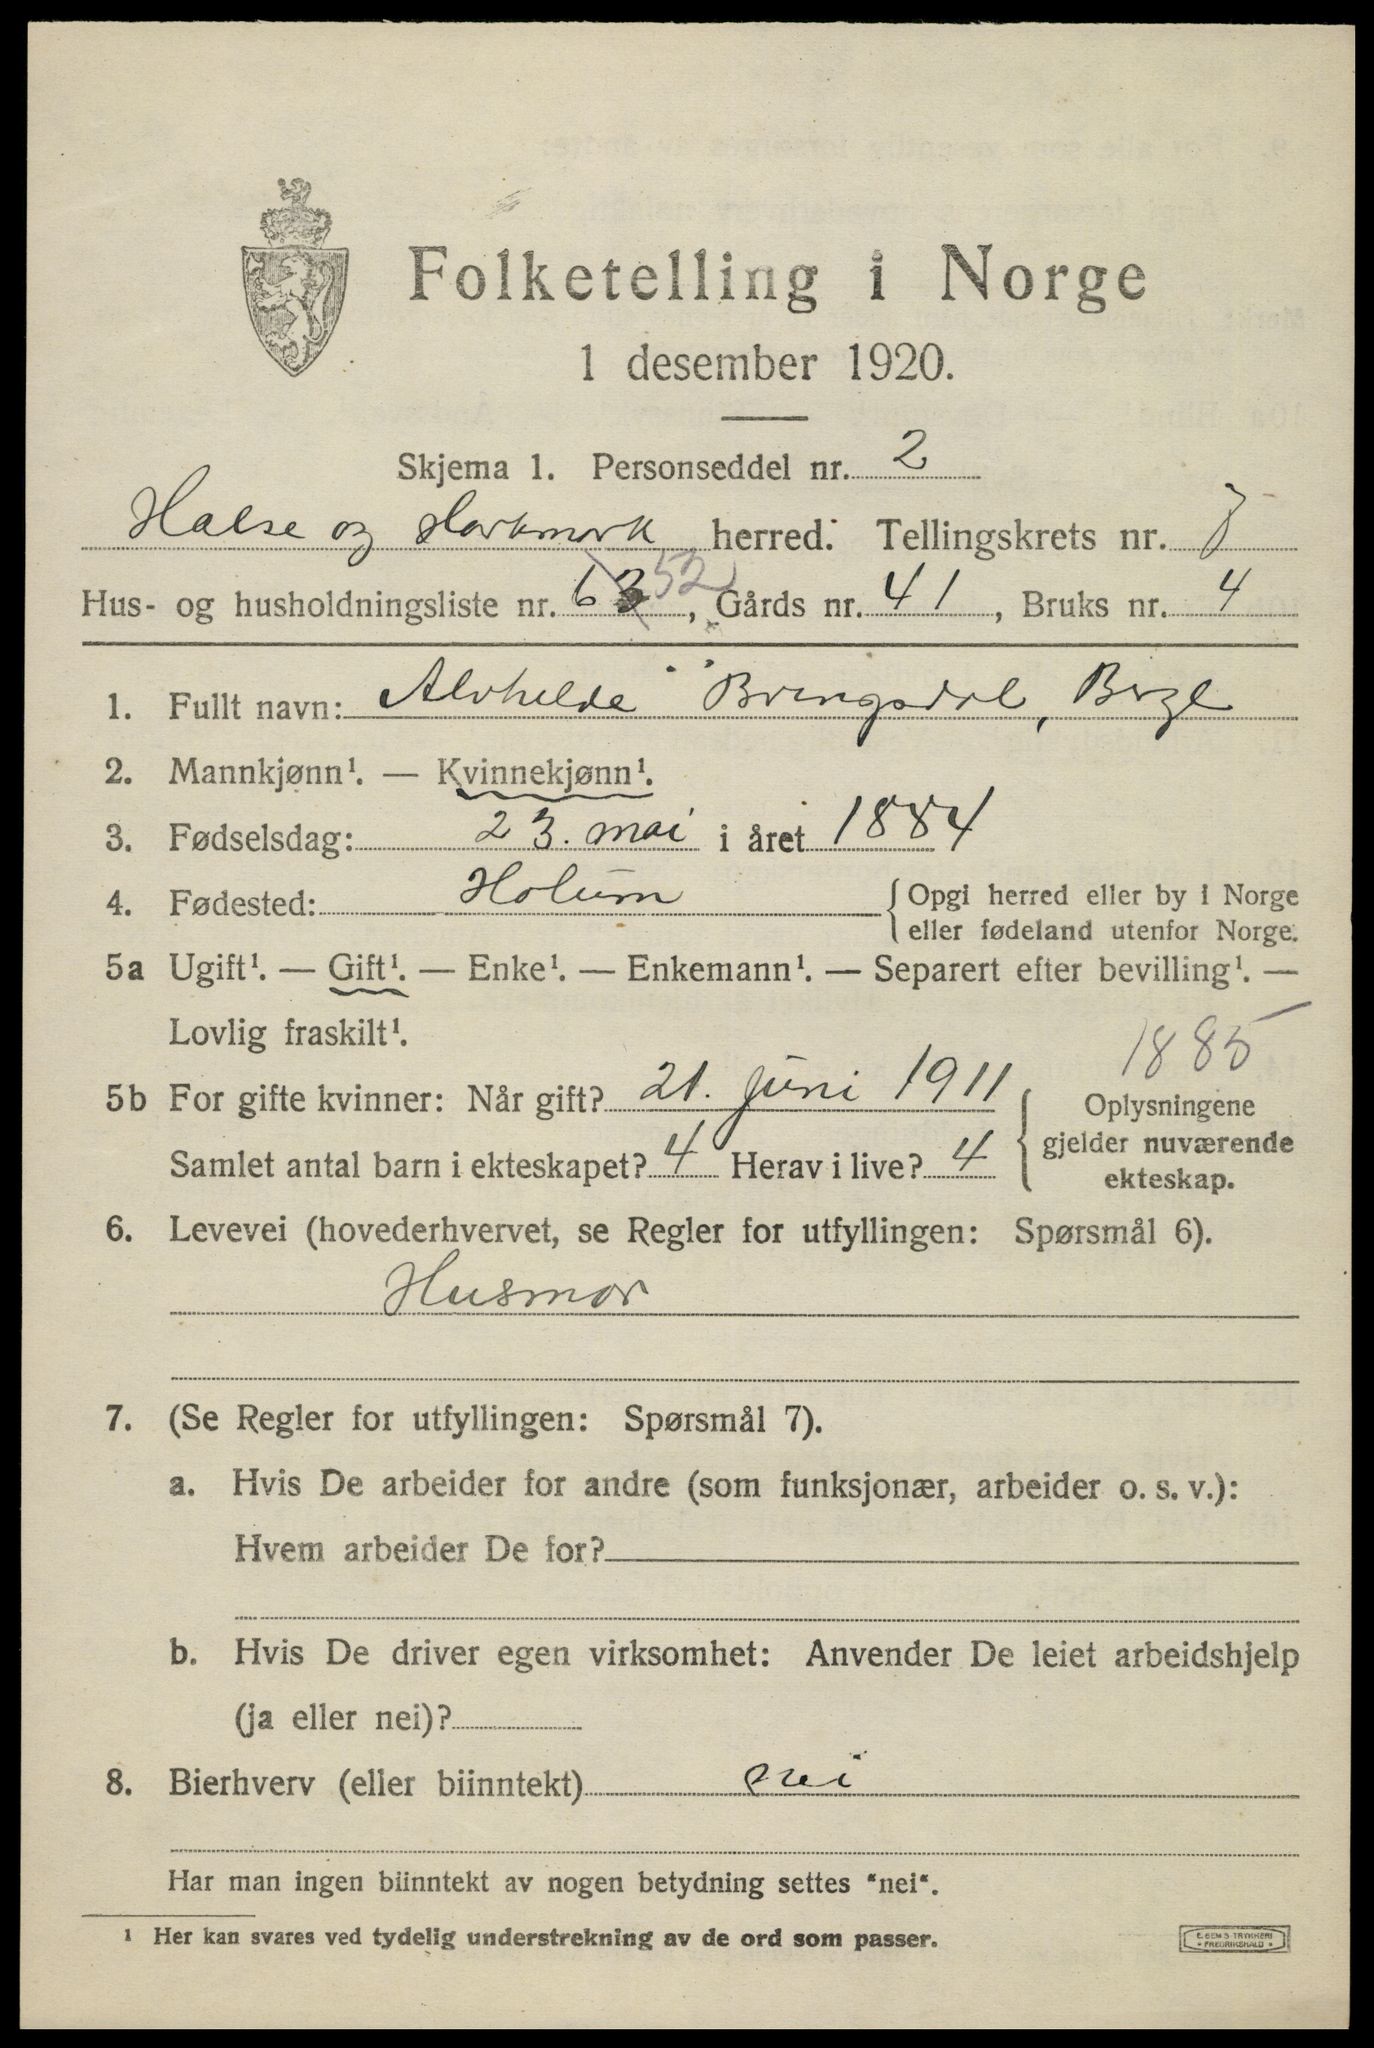 Folketelling i Norge
1 desember 1920.
Skjema 1. Personseddel nr. 2
Halse og Harkmark herred. Tellingskrets nr.
Hus- og husholdningsliste nr. 63 52, Gårds nr. 41, Bruks nr. 4
1. Fullt navn: Alvhilde Bringsdal,
2. Mannkjønn¹. — Kvinnekjønn¹.
3. Fødselsdag: 23. mai i året 1884
4. Fødested: Holum { Opgi herred eller by i Norge
eller fødeland utenfor Norge.
5a Ugift¹. — Gift¹. — Enke¹. — Enkemann¹. — Separert efter bevilling¹. —
Lovlig fraskilt¹.
1885
5b For gifte kvinner: Når gift? 21. juni 1911 { Oplysningene
gjelder nuværende
ekteskap.
Samlet antal barn i ekteskapet? 4 Herav i live? 4
6. Levevei (hovederhvervet, se Regler for utfyllingen: Spørsmål 6).
Husmor
7. (Se Regler for utfyllingen: Spørsmål 7).
a. Hvis De arbeider for andre (som funksjonær, arbeider o. s. v.):
Hvem arbeider De for?
b. Hvis De driver egen virksomhet: Anvender De leiet arbeidshjelp
(ja eller nei)?
8. Bierhverv (eller biinntekt) nei
Har man ingen biinntekt av nogen betydning settes "nei".
¹ Her kan svares ved tydelig understrekning av de ord som passer.
E. SEM'S TRYKKERI
• FREDRIKSHALD •